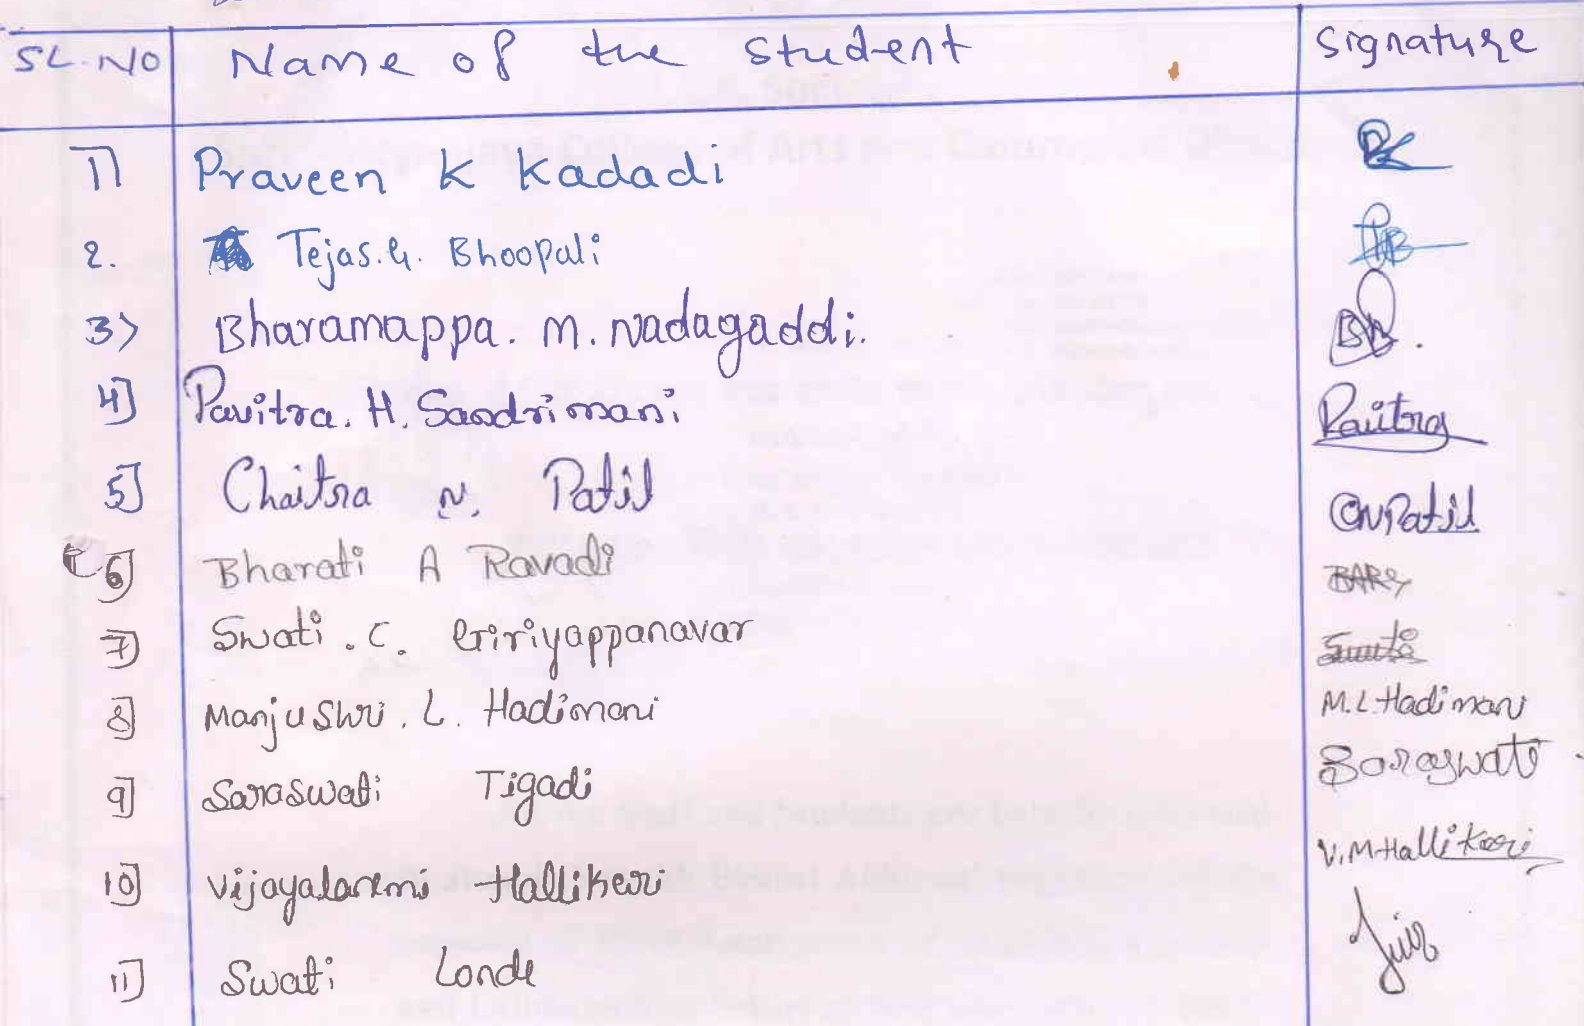 SL.NO Name of the student Signature
1] Praveen K Kadadi
2. Tejas.G. Bhoopali
3) Bharamappa. M. Nadagaddi.
4] Pavitra. H. Sandrimani Pavitra
5] Chaitra N. Patil CNPatil
6] Bharati A Ravadi
7] Swati . C. Giriyappanavar Swati
8] Manjushri . L. Hadimani M.L.Hadimani
9] Saraswati Tigadi Saraswati
10] Vijayalaxmi Hallikeri V.M.Hallikeri
11] Swati Londe